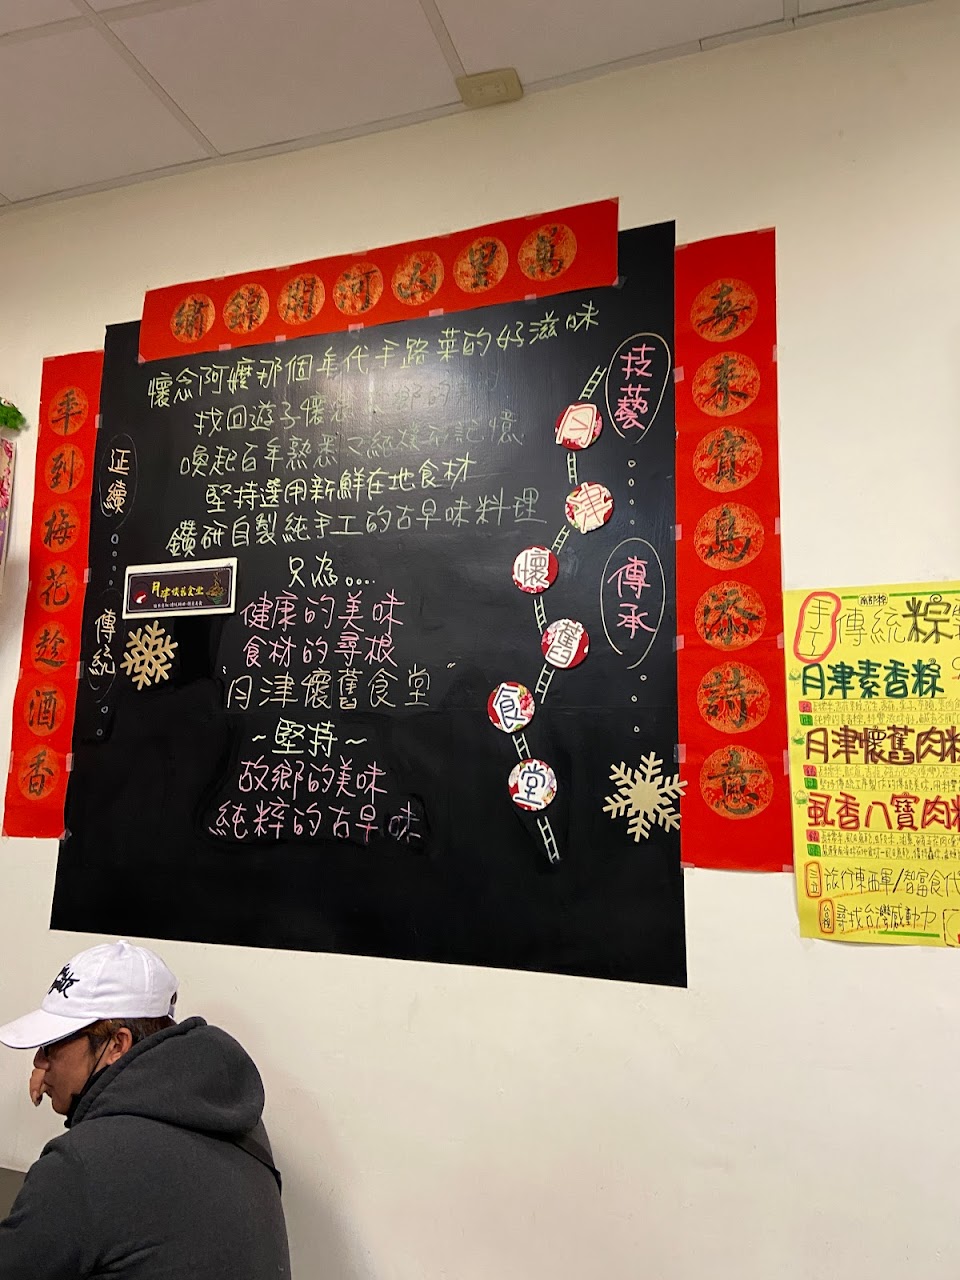 萬里山河開錦繡
春來寶島添詩意
年到梅花趁酒香
懷念阿嬤那個年代手路菜的好滋味
找回遊子懷念 鄉的
喚起百年熟悉 記憶
堅持選用新鮮在地食材
鑽研自製純手工的古早味料理
只為....
健康的美味
食材的尋根
"月津懷舊食堂"
~堅持~
故鄉的美味
純粹的古早味
技藝
傳承
月津懷舊食堂
延續
傳統
月津懷舊食堂
南部粽
手工
傳統粽
月津素香粽
月津懷舊肉粽
虱香八寶肉粽
旅行東西軍/智富食代
尋找台灣感動力